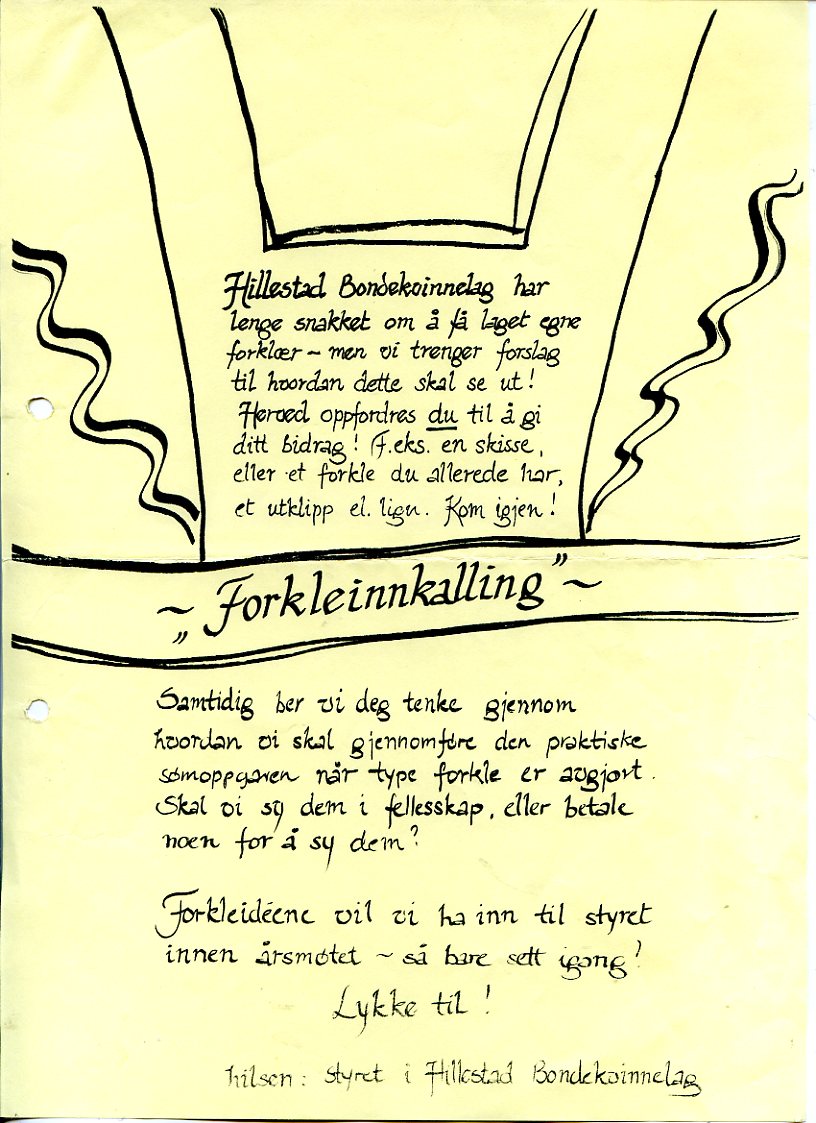 Hillestad Bondekvinnelag har
lenge snakket om å få laget egne
forklær ~ men vi trenger forslag
til hvordan dette skal se ut!
Herved oppfordres du til å gi
ditt bidrag! F.eks. en skisse,
eller et forkle du allerede har,
et utklipp el. lign. Kom igjen!
~ „Forkleinnkalling” ~
Samtidig ber vi deg tenke gjennom
hvordan vi skal gjennomføre den praktiske
sømoppgaven når type forkle er avgjort.
Skal vi sy dem i fellesskap, eller betale
noen for å sy dem?
Forkleidéene vil vi ha inn til styret
innen årsmøtet ~ så bare sett igang!
Lykke til!
hilsen: styret i Hillestad Bondekvinnelag